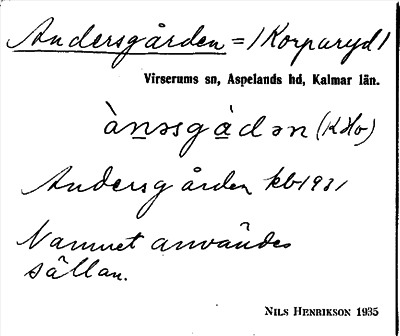 Andersgården = / Korparyd /
Virserums sn, Aspelands hd, Kalmar län.
ànəsgàdən (KHo)
Andersgården kb 1931
Namnet användes
sällan.
NILS HENRIKSON 1935